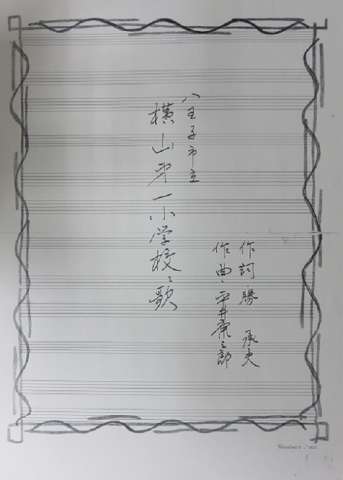 八王子市立
横山第一小学校々歌
作詞 勝 承夫
作曲 平井康三郎